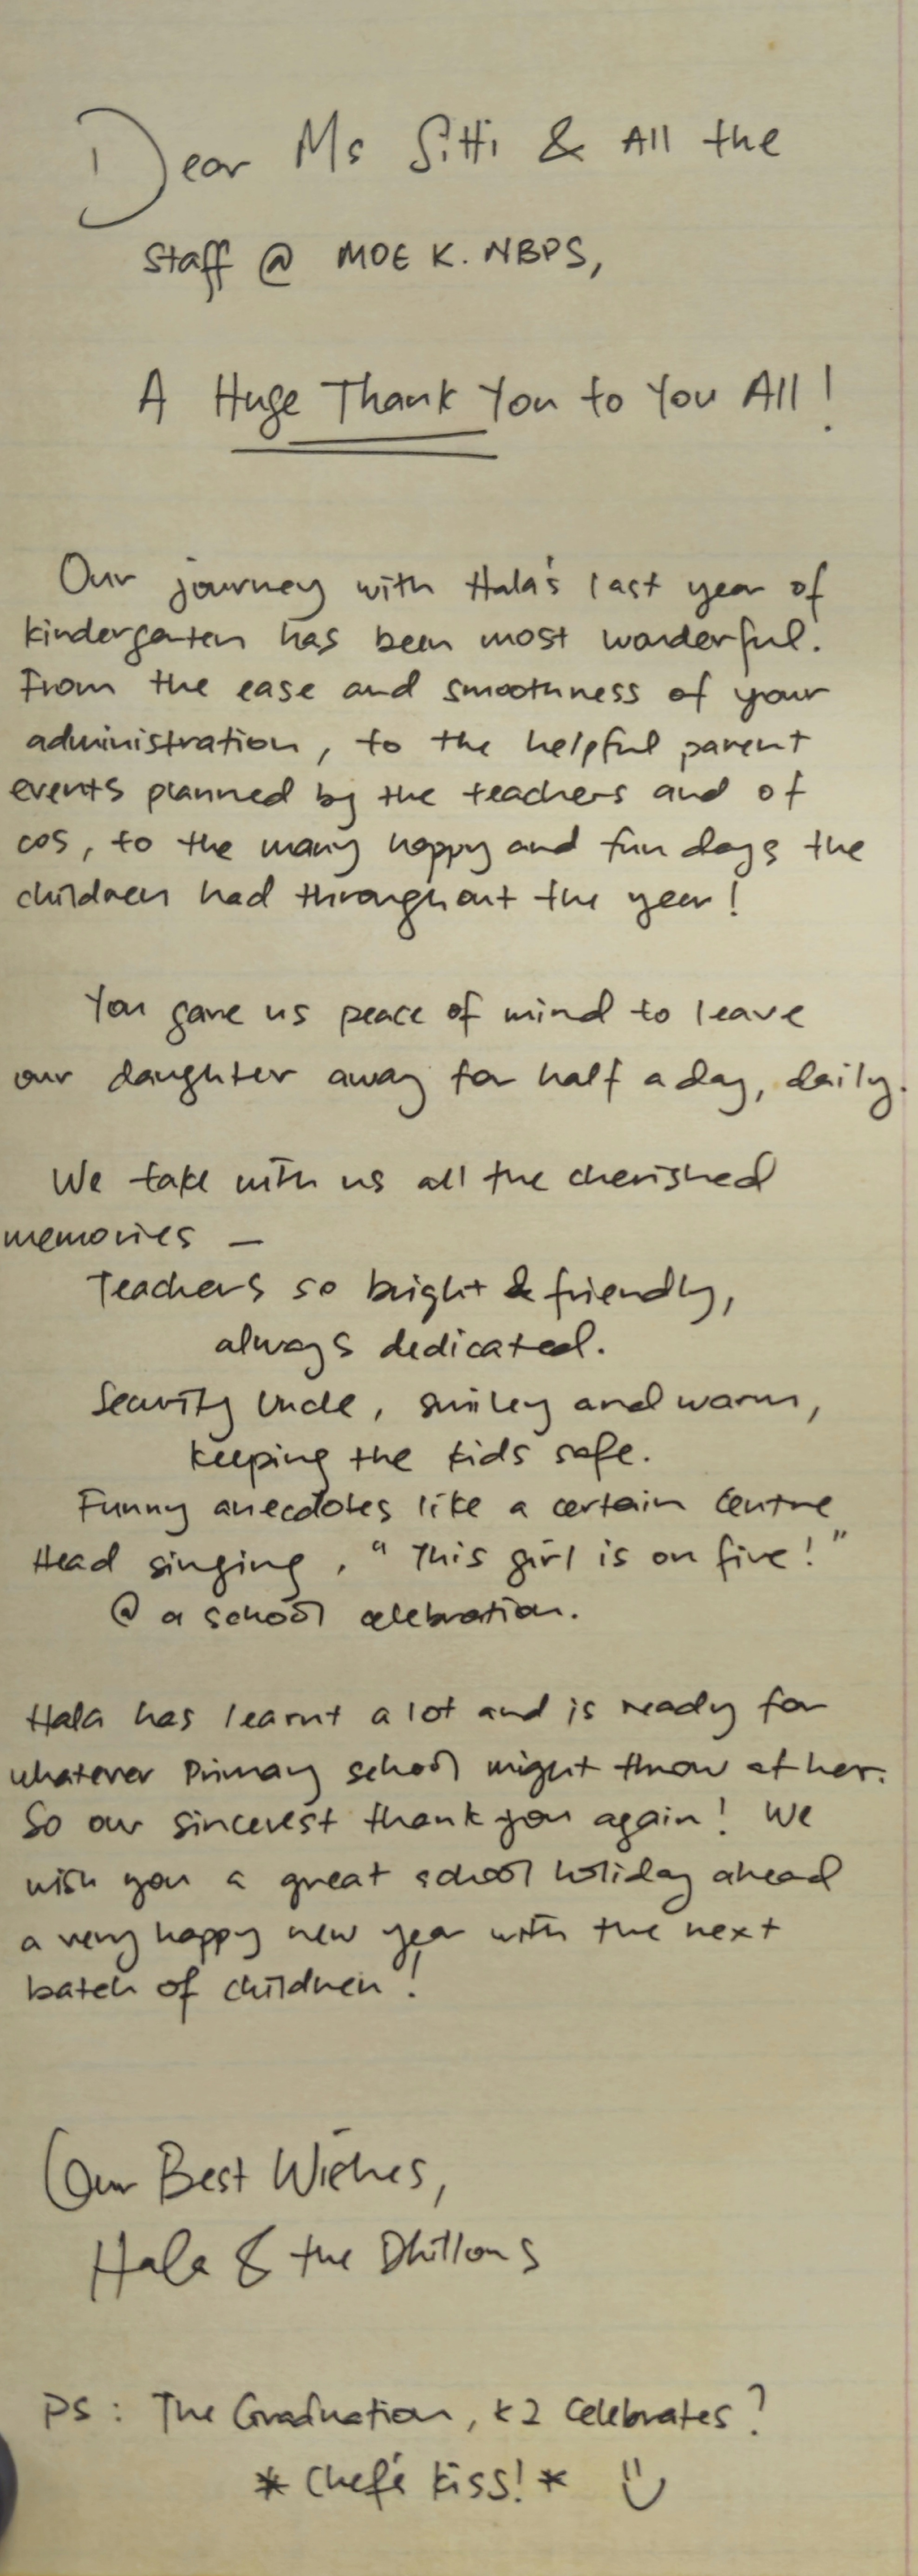 Dear Ms Sitti & All the
Staff @ MOE K. NBPS,
A Huge Thank You to You All!
Our journey with Hala's last year of
kindergarten has been most wonderful.
From the ease and smoothness of your
administration, to the helpful parent
events planned by the teachers and of
cos, to the many happy and fun days the
children had throughout the year!
You gave us peace of mind to leave
our daughter away for half a day, daily.
We take with us all the cherished
memories —
Teachers so bright & friendly,
always dedicated.
Security Uncle, smiley and warm,
keeping the kids safe.
Funny anecdotes like a certain Centre
Head singing, "This girl is on fire!"
@ a school celebration.
Hala has learnt a lot and is ready for
whatever Primary school might throw at her.
So our sincerest thank you again! We
wish you a great school holiday ahead
a very happy new year with the next
batch of children!
Our Best Wishes,
Hala & the Dhillons
PS: The Graduation, K2 Celebrates?
*Chef's kiss!* :)